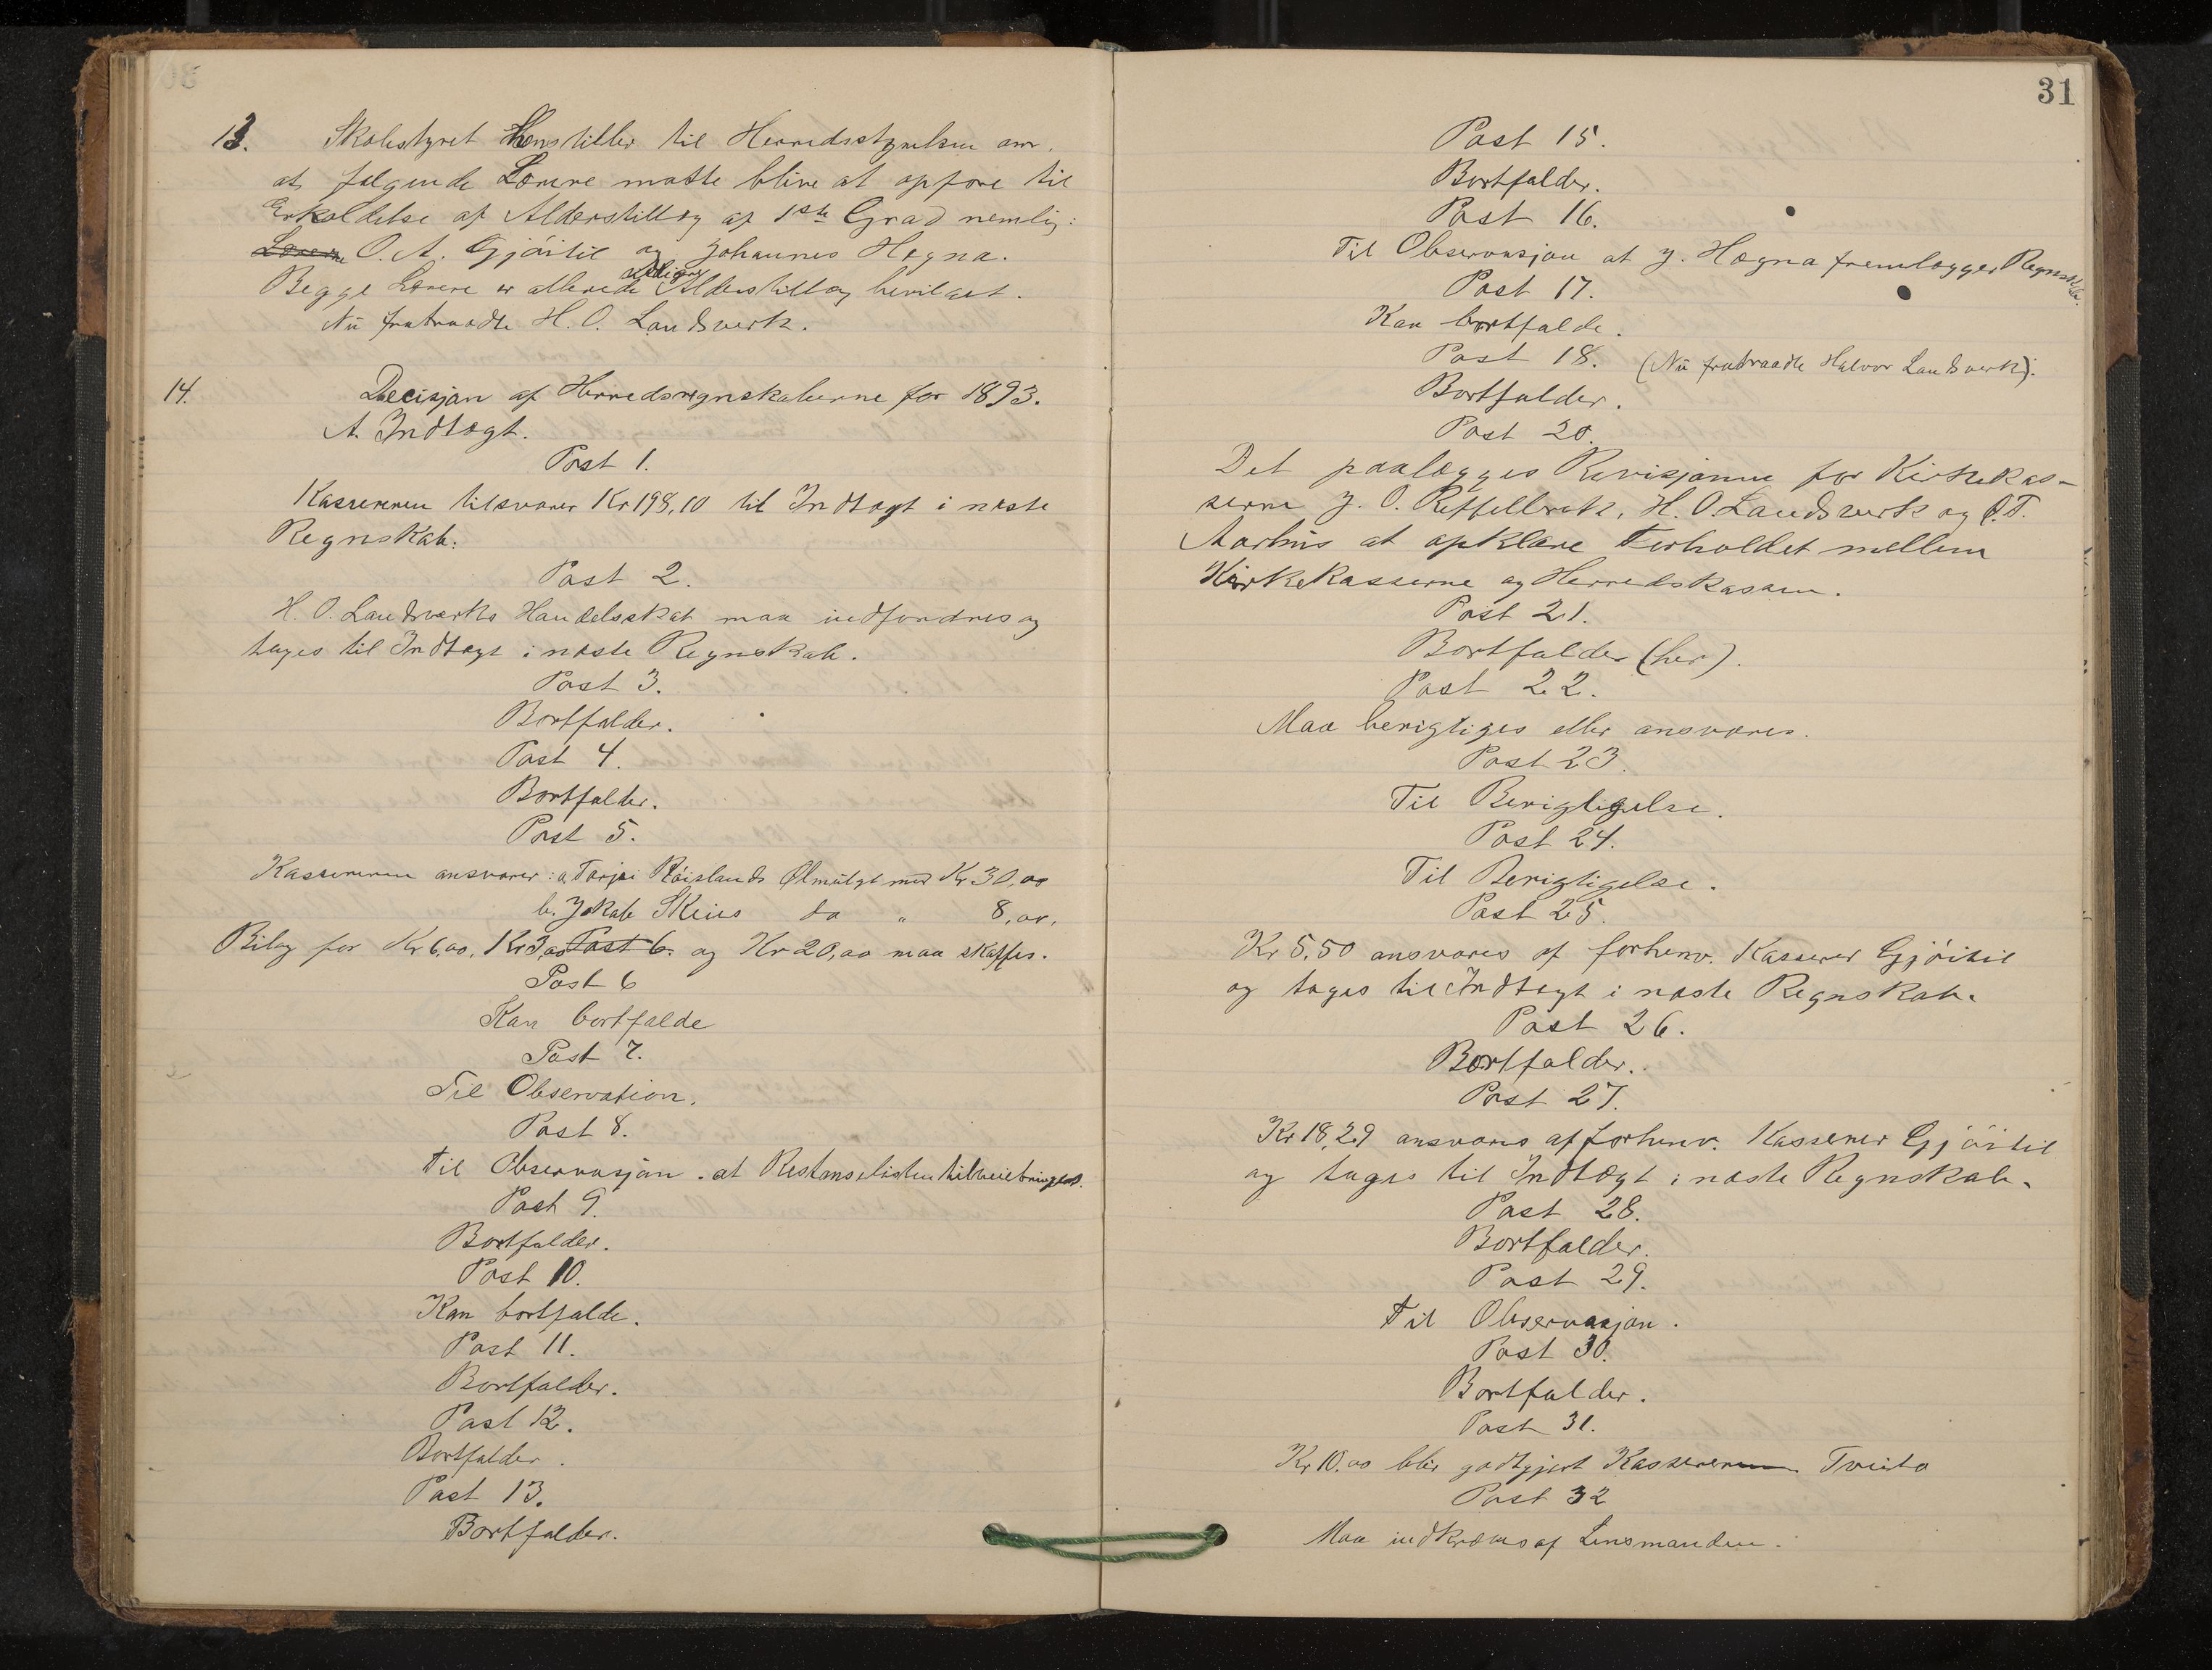 13. Skolestyret henstiller til Herredsstyrelsen om,
at følgende Lærere maatte blive at opføre til
Erholdelse af Alderstillæg af 1ste Grad nemlig:
Lærerne O. A. Gjöitil og Johannes Hægna.
Begge Lærere er allerede Alderstillæg bevilget.
Nu fratraadte H. O. Landsverk.
14. Decisjon af Herredsregnskaberne for 1893.
A. Indtægt.
Post 1.
Kassereren tilsvarer Kr 198,10 til Indtægt i næste
Regnskab.
Post 2.
H. O. Landsverks Handelsskat maa indfordres og
tages til Indtægt i næste Regnskab.
Post 3.
Bortfalder.
Post 4.
Bortfalder.
Post 5.
Kassereren ansvarer: a, Torjei Röislands Ølmulgt med Kr 30,00
b. Jakob Skeies do " 8,00,
Bilag for Kr 6,00, Kr 3,00 Post 6. og Kr 20,00 maa skaffes.
Post 6
Kan bortfalde
Post 7.
Til Observation.
Post 8.
Til Observasjon. at Restanselisten tilveiebringes.
Post 9.
Bortfalder.
Post 10.
Kan bortfalde.
Post 11.
Bortfalder.
Post 12.
Bortfalder.
Post 13.
Bortfalder.
31
Post 15.
Bortfalder.
Post 16.
Til Observasjon at J. Hægna fremlægger Regnskab.
Post 17.
Kan bortfalde.
Post 18. (Nu fratraadte Halvor Landsverk).
Bortfalder.
Post 20.
Det paalægges Revisjonen for Kirkekas-
serne J. O. H. O Landsverk og O. T.
Aarhus at opklare Forholdet mellem
Kirkekasserne og Herredskassen.
Post 21.
Bortfalder (her).
Post 22.
Maa berigtiges eller ansvares.
Post 23.
Til Berigtigelse.
Post 24.
Til Berigtigelse.
Post 25.
Kr 5,50 ansvares af forhenv. Kasserer Gjöitil
og tages til Indtægt i næste Regnskab.
Post 26.
Bortfalder.
Post 27.
Kr 18,29 ansvares af forhenv. Kasserer Gjöitil
og tages til Indtægt i næste Regnskab.
Post 28.
Bortfalder.
Post 29.
Til Observasjon.
Post 30.
Bortfalder.
Post 31.
Kr 10,00 blir godtgjort Kassereren Tveito
Post 32
Maa indkræves af Lensmanden.